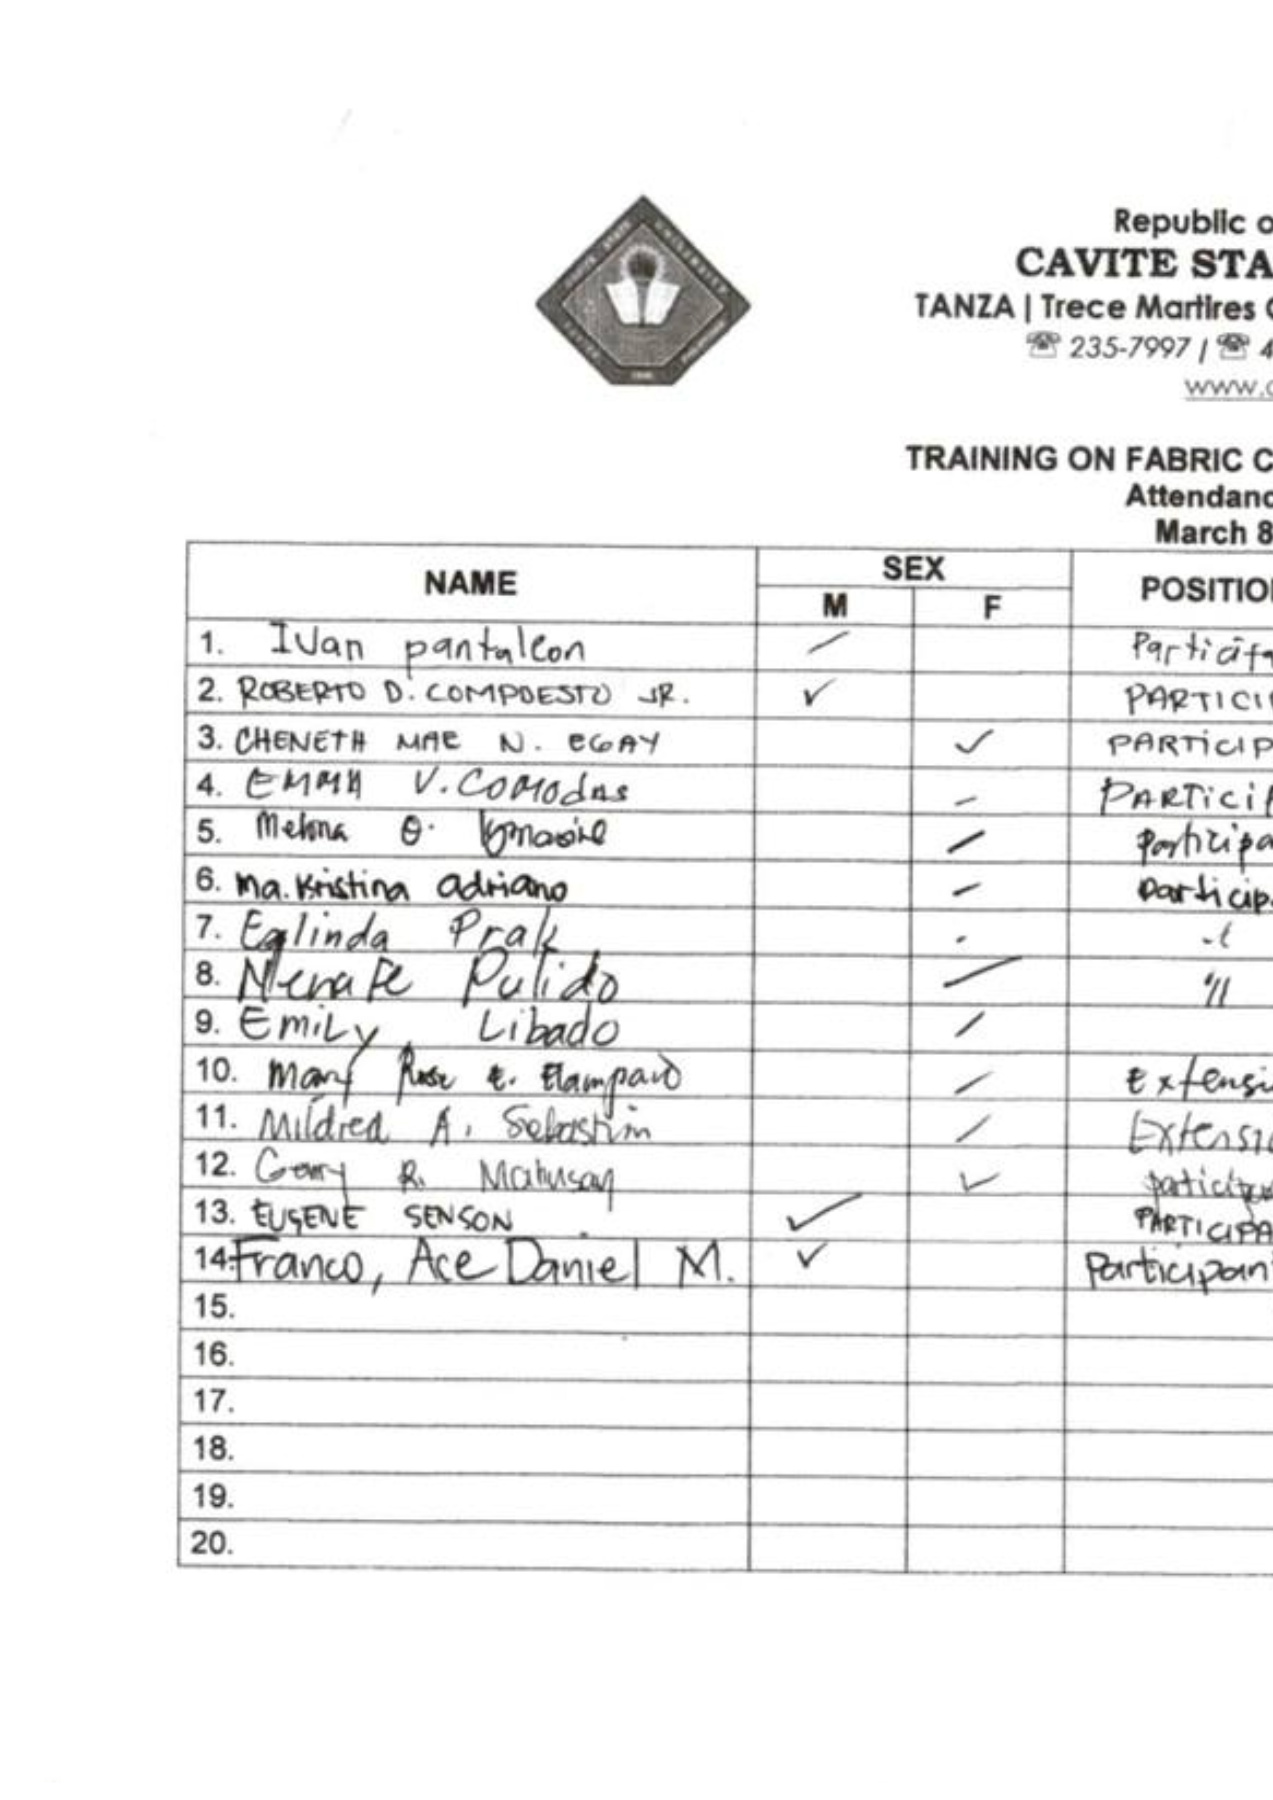 Republic o
CAVITE STA
TANZA | Trece Martires C
☎ 235-7997 / ☎ 4
www.c
TRAINING ON FABRIC C
Attendanc
March 8
NAME SEX POSITIO
M F
1. Ivan pantaleon Participa
2. ROBERTO D. COMPOESTO JR. ✓ PARTICI
3. CHENETH MAE N. EGAY ✓ PARTICIP
4. EMMA V. COMODAS PARTICI
5. O. Participa
6. Ma. Kristina adriano particip
7. Eglinda
8. Nenafe Pulido "
9. Emily Libado
10. Mary Rose E. Elampard Extensi
11. Mildred A. Sebastian Extensi
12. R. ✓ participa
13. EUGENE SENSON ✓ PARTICIPA
14. Franco, Ace Daniel M. ✓ Participan
15.
16.
17.
18.
19.
20.